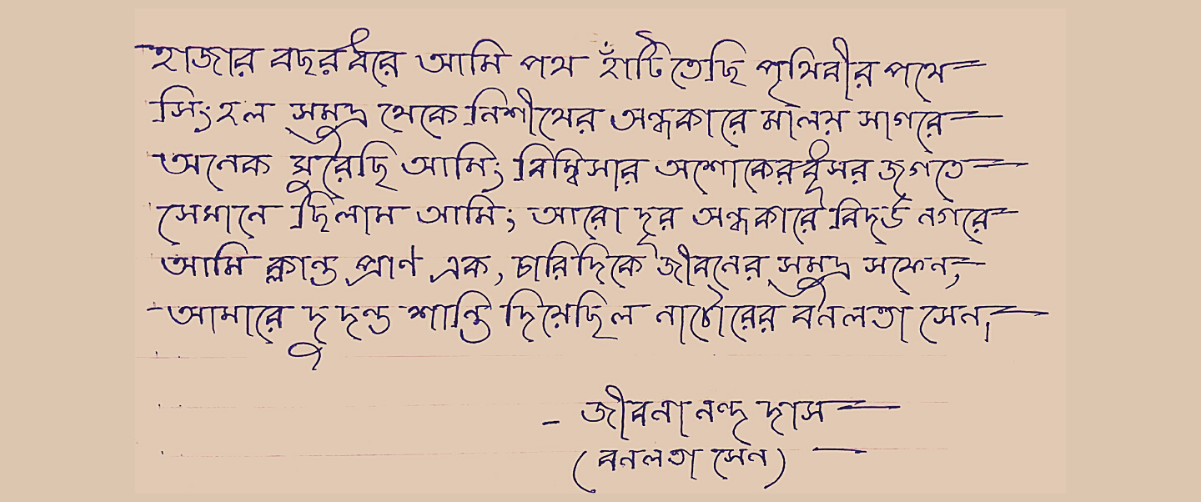 হাজার বছর ধরে আমি পথ হাঁটিতেছি পৃথিবীর পথে
সিংহল সমুদ্র থেকে নিশীথের অন্ধকারে মালয় সাগরে
অনেক ঘুরেছি আমি; বিম্বিসার অশোকের ধূসর জগতে
সেখানে ছিলাম আমি; আরো দূর অন্ধকারে বিদর্ভ নগরে
আমি ক্লান্ত প্রাণ এক, চারিদিকে জীবনের সমুদ্র সফেন,
আমারে দু দন্ড শান্তি দিয়েছিল নাটোরের বনলতা সেন।
- জীবনানন্দ দাস
(বনলতা সেন)